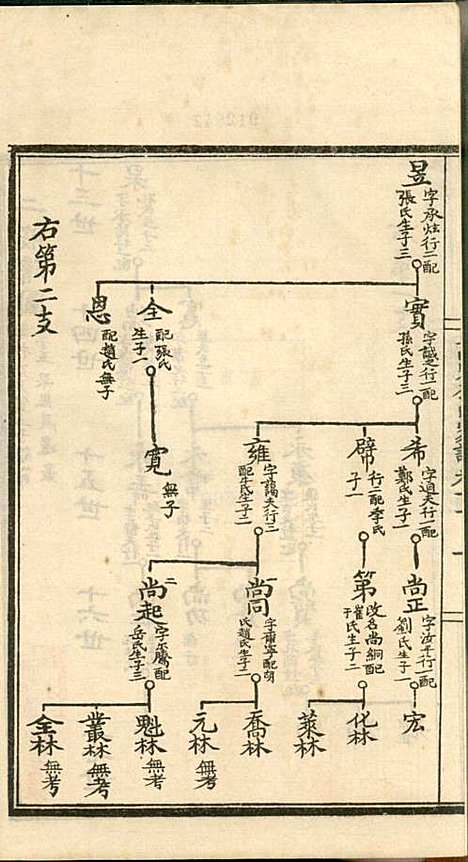 昱
字承炫行二配
張氏生子三
實
字誠之行一配
孫氏生子三
全
配張氏
生子一
恩
配趙氏無子
希
字道夫行一配
鄭氏生子一
辟
行二配李氏
子一
雍
字謁夫行三
配牛氏生子二
寬
無子
尚正
字汝平行一配
劉氏生子一
第
改名尚絅配
崔氏生子二
尚同
配胡
氏趙氏生子二
尚起
二
字示騰配
岳氏生子三
宏
化林
萊林
喬林
元林 無考
魁林 無考
叢林 無考
全林 無考
右第二支
十三世
十四世
十五世
十六世